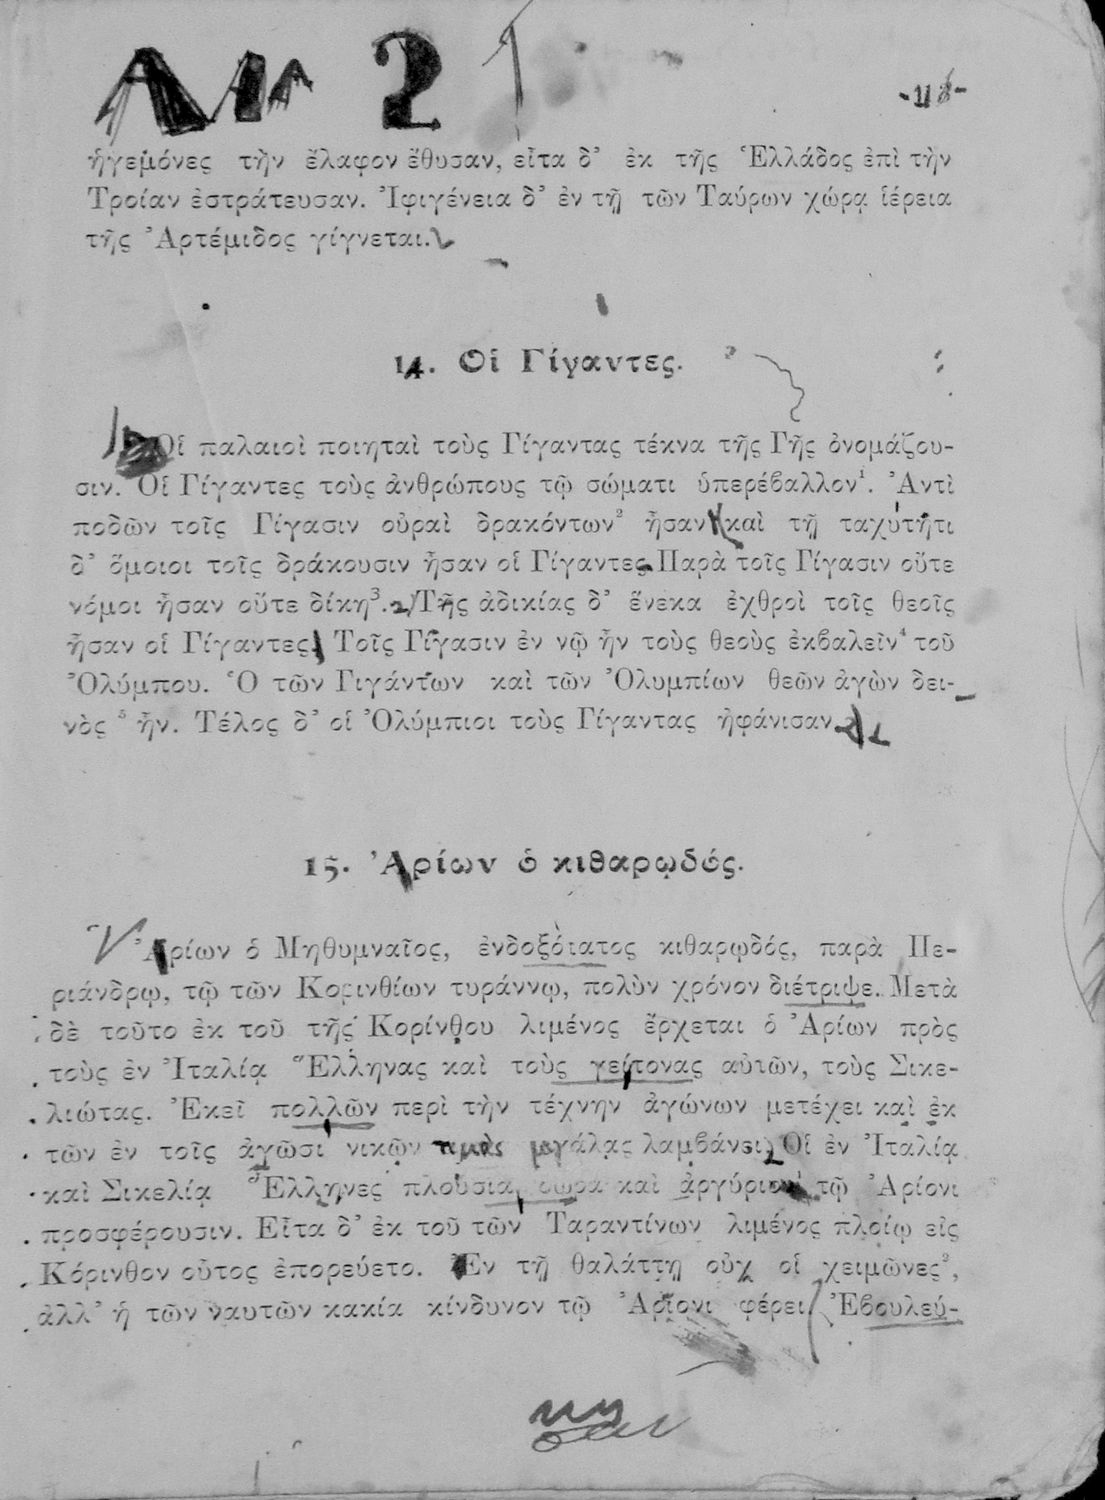 2
ἡγεμόνες τὴν ἔλαφον ἔθυσαν, εἶτα δ’ ἐκ τῆς Ἑλλάδος ἐπὶ τὴν
Τροίαν ἐστράτευσαν. Ἰφιγένεια δ’ ἐν τῇ τῶν Ταύρων χώρᾳ ἱέρεια
τῆς Ἀρτέμιδος γίγνεται.
14. Οἱ Γίγαντες.
Οἱ παλαιοὶ ποιηταὶ τοὺς Γίγαντας τέκνα τῆς Γῆς ὀνομάζου-
σιν. Οἱ Γίγαντες τοὺς ἀνθρώπους τῷ σώματι ὑπερέβαλλον¹. Ἀντὶ
ποδῶν τοῖς Γίγασιν οὐραὶ δρακόντων² ἦσαν καὶ τῇ ταχύτητι
δ’ ὅμοιοι τοῖς δράκουσιν ἦσαν οἱ Γίγαντες. Παρὰ τοῖς Γίγασιν οὔτε
νόμοι ἦσαν οὔτε δίκη³. Τῆς ἀδικίας δ’ ἕνεκα ἐχθροὶ τοῖς θεοῖς
ἦσαν οἱ Γίγαντες. Τοῖς Γίγασιν ἐν νῷ ἦν τοὺς θεοὺς ἐκβαλεῖν⁴ τοῦ
Ὀλύμπου. Ὁ τῶν Γιγάντων καὶ τῶν Ὀλυμπίων θεῶν ἀγὼν δει-
νὸς⁵ ἦν. Τέλος δ’ οἱ Ὀλύμπιοι τοὺς Γίγαντας ἠφάνισαν
15. Ἀρίων ὁ κιθαρῳδός.
Ἀρίων ὁ Μηθυμναῖος, ἐνδοξότατος κιθαρῳδός, παρὰ Πε-
ριάνδρῳ, τῷ τῶν Κορινθίων τυράννῳ, πολὺν χρόνον διέτριψε. Μετὰ
δὲ τοῦτο ἐκ τοῦ τῆς Κορίνθου λιμένος ἔρχεται ὁ Ἀρίων πρὸς
τοὺς ἐν Ἰταλίᾳ Ἕλληνας καὶ τοὺς γείτονας αὐτῶν, τοὺς Σικε-
λιώτας. Ἐκεῖ πολλῶν περὶ τὴν τέχνην ἀγώνων μετέχει καὶ ἐκ
τῶν ἐν τοῖς ἀγῶσι νικῶν τιμὰς μεγάλας λαμβάνει. Οἱ ἐν Ἰταλίᾳ
καὶ Σικελίᾳ Ἕλληνες πλούσια δῶρα καὶ ἀργύριον τῷ Ἀρίονι
προσφέρουσιν. Εἶτα δ’ ἐκ τοῦ τῶν Ταραντίνων λιμένος πλοίῳ εἰς
Κόρινθον οὗτος ἐπορεύετο. Ἐν τῇ θαλάττῃ οὐχ οἱ χειμῶνες²,
ἀλλ’ ἡ τῶν ναυτῶν κακία κίνδυνον τῷ Ἀρίονι φέρει. Ἐβουλεύ-